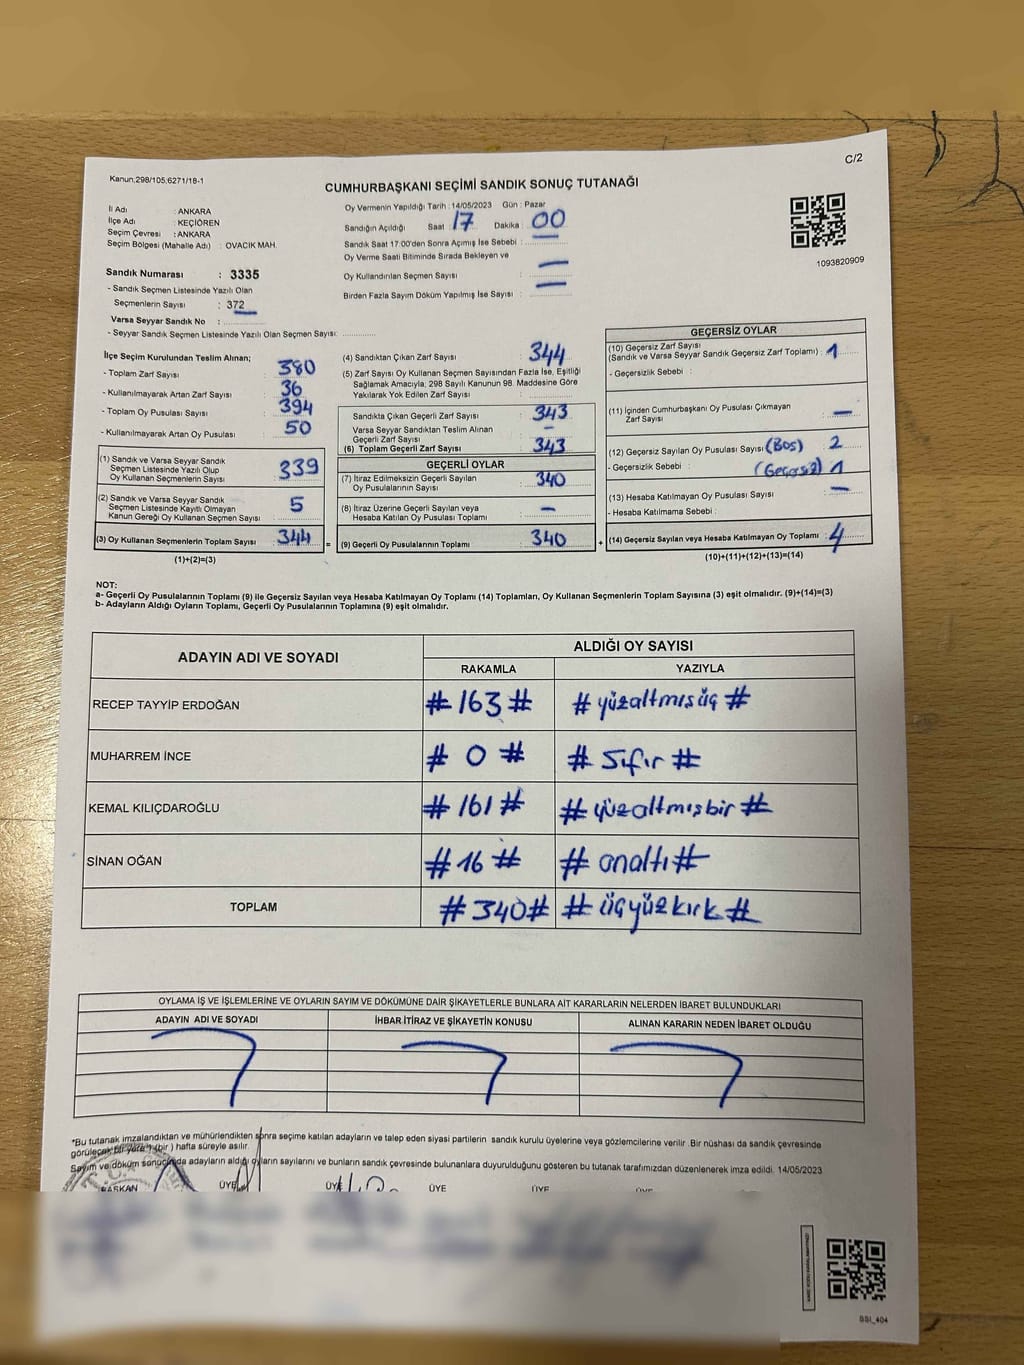 C/2
Kanun,298/105,6271/18-1
CUMHURBAŞKANI SEÇİMİ SANDIK SONUÇ TUTANAĞI
İl Adı : ANKARA
İlçe Adı : KEÇİÖREN
Seçim Çevresi : ANKARA
Seçim Bölgesi (Mahalle Adı) : OVACIK MAH.
Oy Vermenin Yapıldığı Tarih : 14/05/2023 Gün : Pazar
Sandığın Açıldığı Saat : 17 Dakika : 00
Sandık Saat 17:00'den Sonra Açımış İse Sebebi :
Oy Verme Saati Bitiminde Sırada Bekleyen ve
Oy Kullandırılan Seçmen Sayısı : —
Birden Fazla Sayım Döküm Yapılmış İse Sayısı : —
1093820909
Sandık Numarası : 3335
- Sandık Seçmen Listesinde Yazılı Olan
Seçmenlerin Sayısı : 372
Varsa Seyyar Sandık No :
- Seyyar Sandık Seçmen Listesinde Yazılı Olan Seçmen Sayısı:
İlçe Seçim Kurulundan Teslim Alınan;
- Toplam Zarf Sayısı : 380
- Kullanılmayarak Artan Zarf Sayısı : 36
- Toplam Oy Pusulası Sayısı : 394
- Kullanılmayarak Artan Oy Pusulası : 50
(1) Sandık ve Varsa Seyyar Sandık
Seçmen Listesinde Yazılı Olup
Oy Kullanan Seçmenlerin Sayısı : 339
(2) Sandık ve Varsa Seyyar Sandık
Seçmen Listesinde Kayıtlı Olmayan
Kanun Gereği Oy Kullanan Seçmen Sayısı : 5
(3) Oy Kullanan Seçmenlerin Toplam Sayısı : 344 =
(1)+(2)=(3)
(4) Sandıktan Çıkan Zarf Sayısı : 344
(5) Zarf Sayısı Oy Kullanan Seçmen Sayısından Fazla İse, Eşitliği
Sağlamak Amacıyla, 298 Sayılı Kanunun 98. Maddesine Göre
Yakılarak Yok Edilen Zarf Sayısı :
Sandıkta Çıkan Geçerli Zarf Sayısı : 343
Varsa Seyyar Sandıktan Teslim Alınan
Geçerli Zarf Sayısı : —
(6) Toplam Geçerli Zarf Sayısı : 343
GEÇERLİ OYLAR
(7) İtiraz Edilmeksizin Geçerli Sayılan
Oy Pusulalarının Sayısı : 340
(8) İtiraz Üzerine Geçerli Sayılan veya
Hesaba Katılan Oy Pusulası Toplamı : —
(9) Geçerli Oy Pusulalarının Toplamı : 340 +
GEÇERSİZ OYLAR
(10) Geçersiz Zarf Sayısı
(Sandık ve Varsa Seyyar Sandık Geçersiz Zarf Toplamı) : 1
- Geçersizlik Sebebi :
(11) İçinden Cumhurbaşkanı Oy Pusulası Çıkmayan
Zarf Sayısı : —
(12) Geçersiz Sayılan Oy Pusulası Sayısı : (Boş) 2
- Geçersizlik Sebebi : (Geçersiz) 1
(13) Hesaba Katılmayan Oy Pusulası Sayısı : —
- Hesaba Katılmama Sebebi :
(14) Geçersiz Sayılan veya Hesaba Katılmayan Oy Toplamı : 4
(10)+(11)+(12)+(13)=(14)
NOT:
a- Geçerli Oy Pusulalarının Toplamı (9) ile Geçersiz Sayılan veya Hesaba Katılmayan Oy Toplamı (14) Toplamları, Oy Kullanan Seçmenlerin Toplam Sayısına (3) eşit olmalıdır. (9)+(14)=(3)
b- Adayların Aldığı Oyların Toplamı, Geçerli Oy Pusulalarının Toplamına (9) eşit olmalıdır.
ADAYIN ADI VE SOYADI ALDIĞI OY SAYISI
RAKAMLA YAZIYLA
RECEP TAYYİP ERDOĞAN # 163 # # yüzaltmışüç #
MUHARREM İNCE # 0 # # Sıfır #
KEMAL KILIÇDAROĞLU # 161 # # yüzaltmışbir #
SİNAN OĞAN # 16 # # onaltı #
TOPLAM # 340 # # üçyüzkırk #
OYLAMA İŞ VE İŞLEMLERİNE VE OYLARIN SAYIM VE DÖKÜMÜNE DAİR ŞİKAYETLERLE BUNLARA AİT KARARLARIN NELERDEN İBARET BULUNDUKLARI
ADAYIN ADI VE SOYADI İHBAR İTİRAZ VE ŞİKAYETİN KONUSU ALINAN KARARIN NEDEN İBARET OLDUĞU
*Bu tutanak imzalandıktan ve mühürlendikten sonra seçime katılan adayların ve talep eden siyasi partilerin sandık kurulu üyelerine veya gözlemcilerine verilir. Bir nüshası da sandık çevresinde
görülecek bir yere 1 (bir) hafta süreyle asılır.
Sayım ve döküm sonucunda adayların aldığı oyların sayılarını ve bunların sandık çevresinde bulunanlara duyurulduğunu gösteren bu tutanak tarafımızdan düzenlenerek imza edildi. 14/05/2023
BAŞKAN ÜYE ÜYE ÜYE ÜYE ÜYE
BSI_404